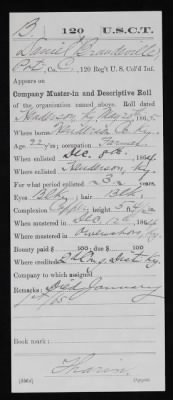 B. 120 U.S.C.T.
Daniel
Pvt., Co. C, 120 Reg't U. S. Col'd Inf.
Appears on
Company Muster-in and Descriptive Roll
of the organization named above. Roll dated
Henderson Ky
Where born Henderson Co. Ky.
Age 22 y'rs; occupation Farmer
When enlisted Dec. 1864
Where enlisted Henderson, Ky.
For what period enlisted 3 years
Eyes Blk; hair Blk
Complexion height 5 ft.
When mustered in Dec. 1864
Where mustered in Owensboro, Ky.
Bounty paid $ 100; due $ 100
Where credited 2 Cong. Dist. Ky.
Company to which assigned
Remarks: Died January
Book mark: